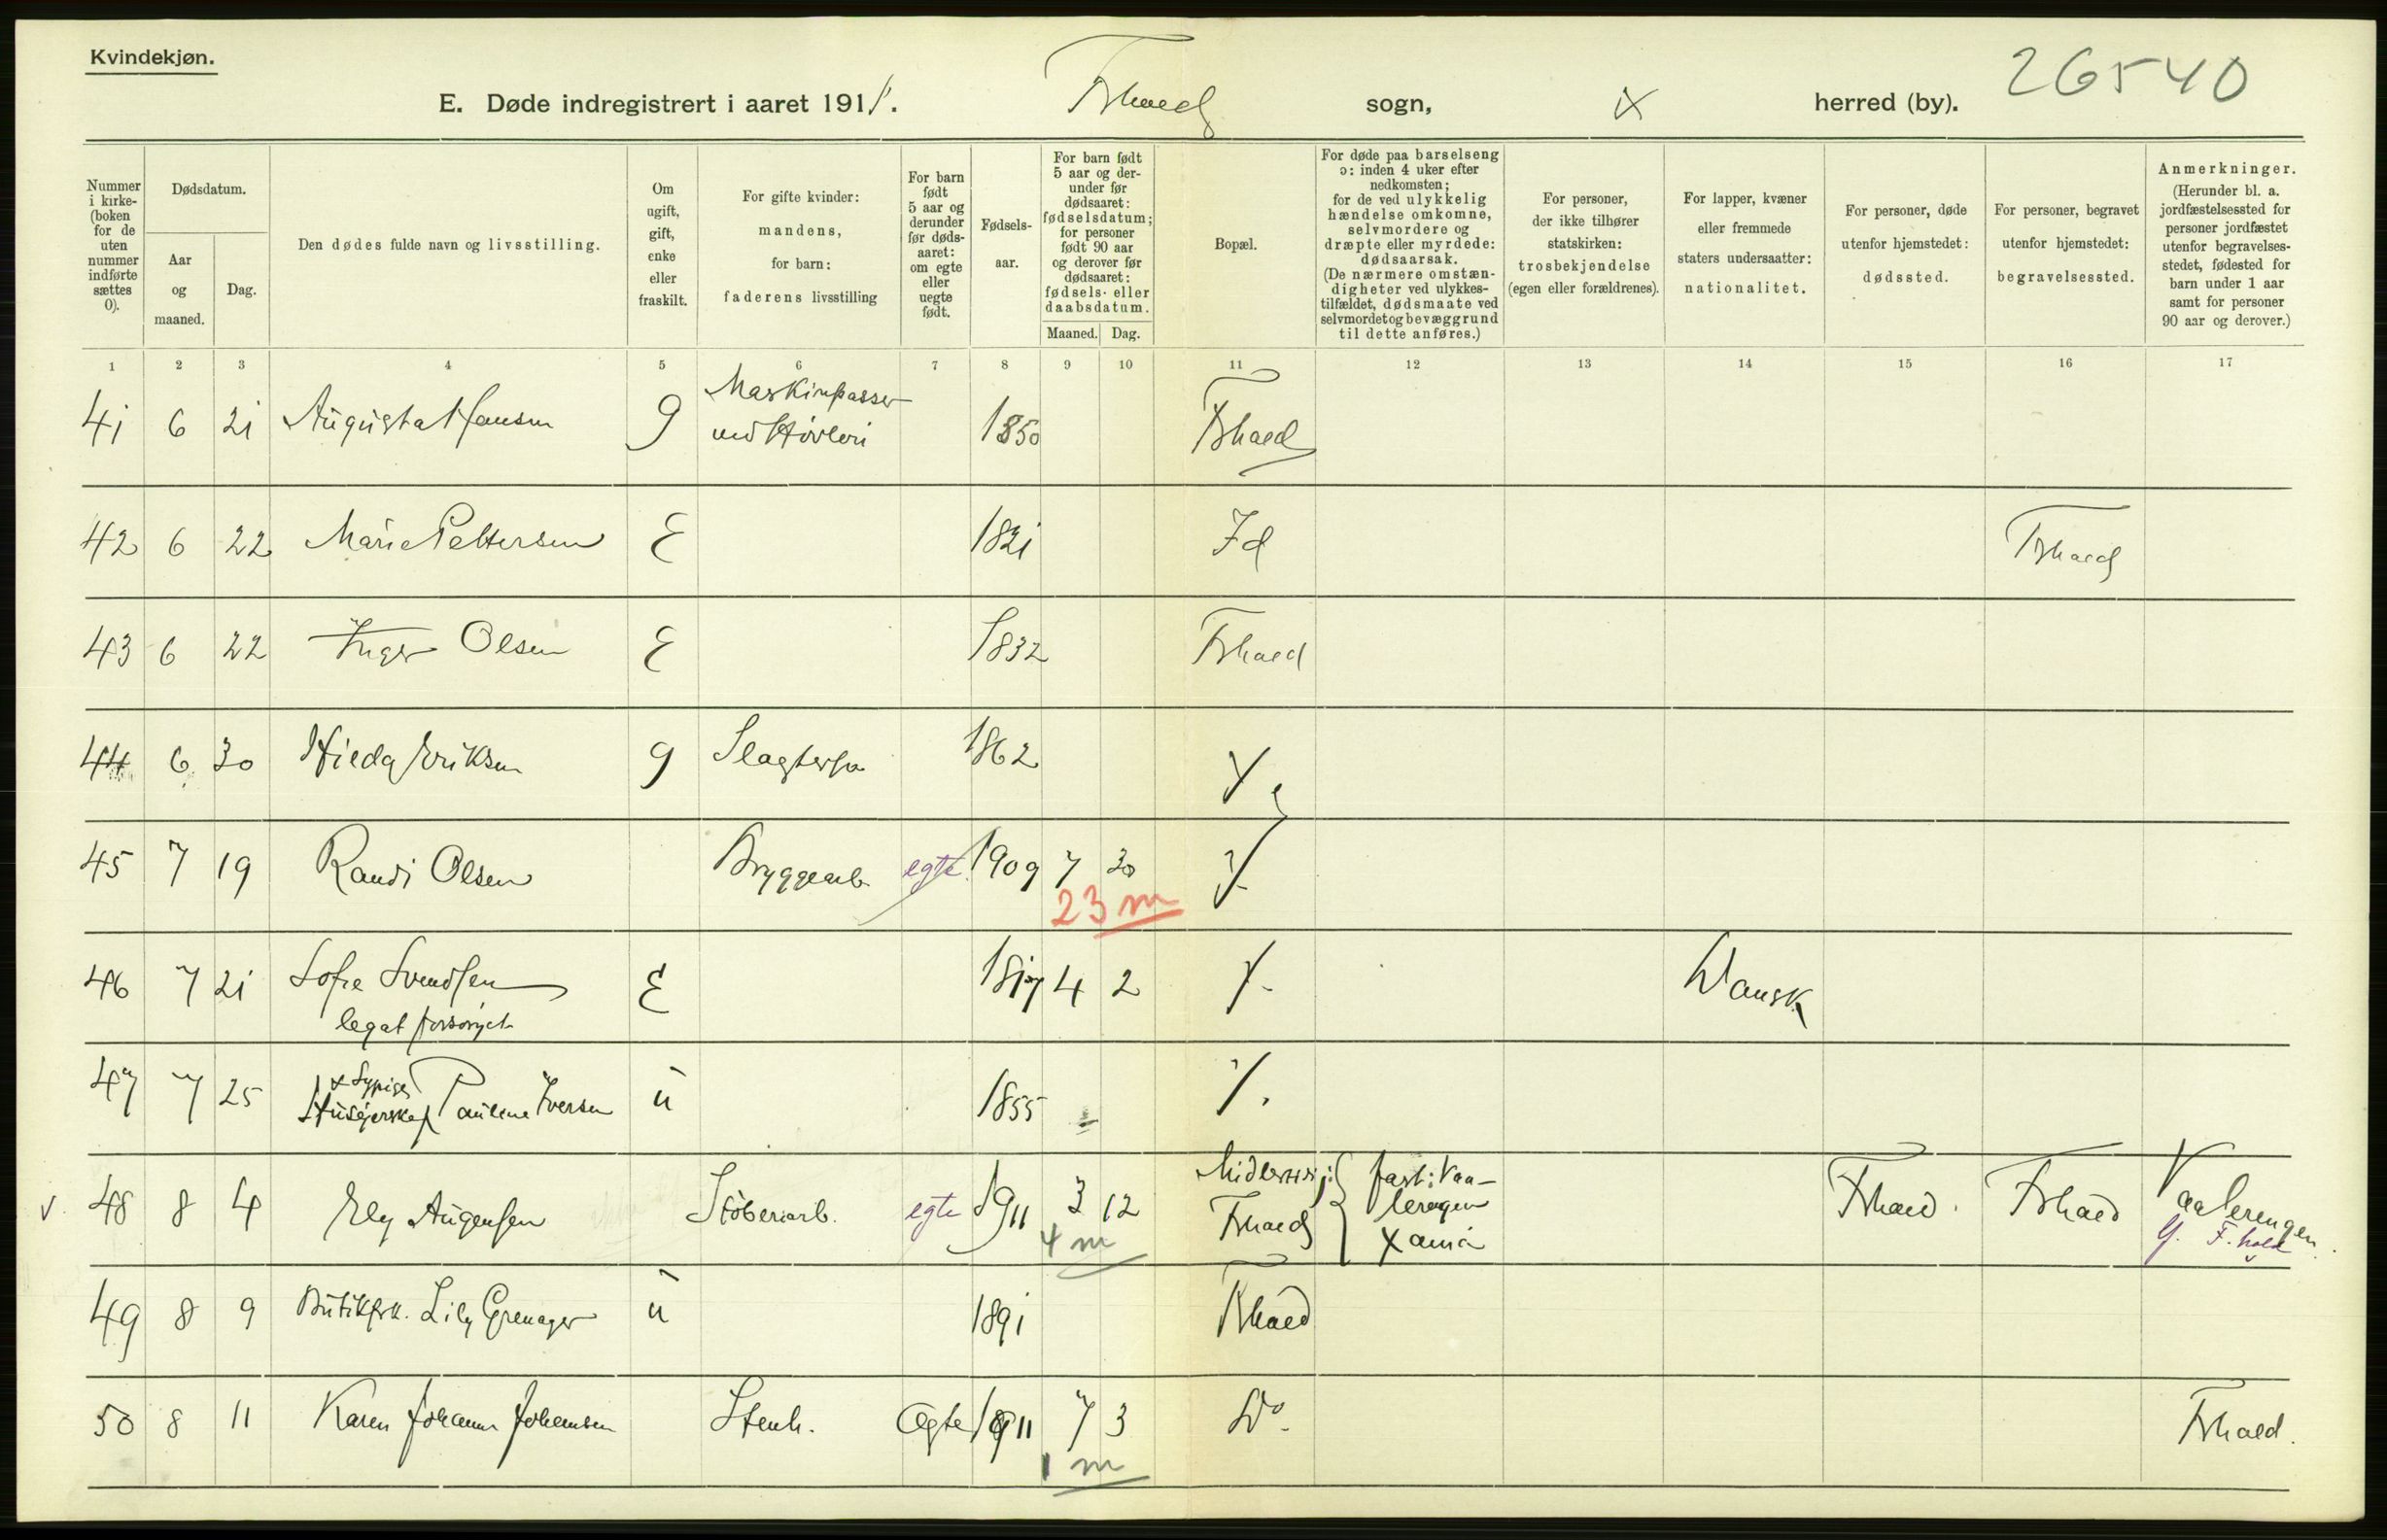 Kvindekjøn.
26540
E. Døde indregistrert i aaret 1911. Frhald sogn, herred (by).
Nummer i kirkeboken for de uten nummer indførte sættes 0).
Dødsdatum.
Aar og maaned.
Dag.
Den dødes fulde navn og livsstilling.
Om ugift, gift, enke eller fraskilt.
For gifte kvinder: mandens, for barn: faderens livsstilling
For barn født 5 aar og derunder før dødsaaret: om egte eller uegte født.
Fødselsaar.
For barn født 5 aar og derunder før dødsaaret: fødselsdatum; for personer født 90 aar og derover før dødsaaret: fødsels- eller daabsdatum.
Maaned. Dag.
Bopæl.
For døde paa barselseng ɔ: inden 4 uker efter nedkomsten; for de ved ulykkelig hændelse omkomne, selvmordere og dræpte eller myrdede: dødsaarsak. (De nærmere omstændigheter ved ulykkestilfældet, dødsmaate ved selvmordet og bevæggrund til dette anføres.)
For personer, der ikke tilhører statskirken: trosbekjendelse (egen eller forældrenes).
For lapper, kvæner eller fremmede staters undersaatter: nationalitet.
For personer, døde utenfor hjemstedet: dødssted.
For personer, begravet utenfor hjemstedet: begravelsessted.
Anmerkninger. (Herunder bl. a. jordfæstelsessted for personer jordfæstet utenfor begravelsesstedet, fødested for barn under 1 aar samt for personer 90 aar og derover.)
1 2 3 4 5 6 7 8 9 10 11 12 13 14 15 16 17
41 6 21 Augusta Hansen g Maskinpasser ved Høvleri 1850 Frhald
42 6 22 Marie Pettersen E 1821 Id Frhald
43 6 22 Inger Olsen E 1832 Frhald
44 6 30 Hilda Eriksen g 1862
45 7 19 Randi Olsen Bryggearb. egte 1909 7 30
23 m
46 7 21 Sofie Svendsen E 1817 4 2 Dansk
legat forsørget
47 7 25 Sypige Husejerske Pauline Iversen u 1855
48 8 4 Ely Augensen Støberiarb. egte 1911 3 12 Midlertidig: Frhald fast: Vaalerengen Xania Frhald. Frhald Vaalerengen
4 m
F. hald
49 8 9 Butikfrk. Lily Grenager u 1891 Frhald
50 8 11 Karen Johanne Johansen Stenh. Egte 1911 7 3 Do. Frhald.
1 m